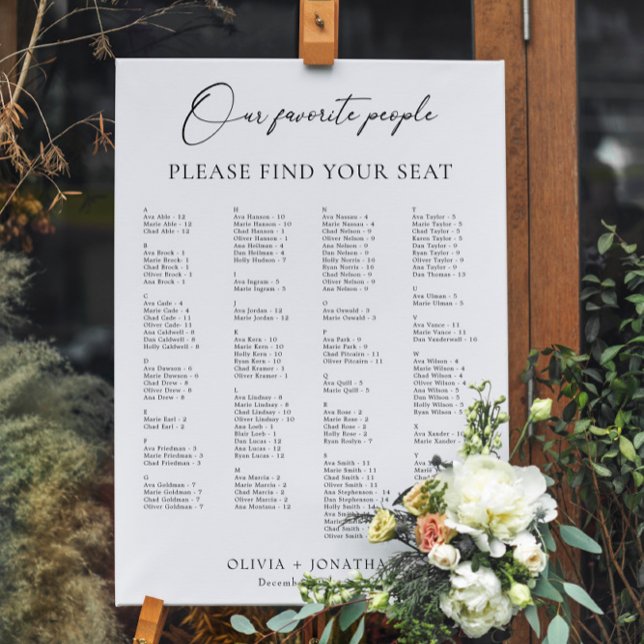 Our favorite people
PLEASE FIND YOUR SEAT
A
Ava Able - 12
Marie Able - 12
Chad Able - 12
B
Ava Brock - 1
Marie Brock- 1
Chad Brock - 1
Oliver Brock - 1
Ana Brock - 1
C
Ava Cade - 4
Marie Cade - 4
Chad Cade- 11
Oliver Cade- 11
Ana Caldwell - 8
Dan Caldwell - 8
Holly Caldwell - 8
D
Ava Dawson - 5
Marie Dawson - 5
Chad Drew - 8
Oliver Drew - 8
Ana Drew - 8
E
Marie Earl - 2
Chad Earl - 2
F
Ava Friedman - 3
Marie Friedman - 3
Chad Friedman - 3
G
Ava Goldman - 7
Marie Goldman - 7
Chad Goldman - 7
Oliver Goldman - 7
H
Ava Hanson - 10
Marie Hanson - 10
Chad Hanson - 1
Oliver Hanson - 1
Ana Heilman - 4
Dan Heilman - 4
Holly Hudson - 7
I
Ava Ingram - 5
Marie Ingram - 5
J
Ava Jordan - 12
Marie Jordan - 12
K
Ava Kern - 10
Marie Kern - 10
Holly Kern - 10
Ryan Kern - 10
Chad Kramer - 1
Oliver Kramer - 1
L
Ava Lindsay - 8
Marie Lindsay - 8
Chad Lindsay - 10
Oliver Lindsay - 10
Ana Loeb - 1
Blair Loeb - 1
Dan Lucas - 12
Ana Lucas - 12
Ryan Lucas - 12
M
Ava Marcia - 2
Marie Marcia - 2
Chad Marcia - 2
Oliver Marcia - 2
Ana Montana - 12
N
Ava Nassau - 4
Marie Nassau - 4
Chad Nelson - 9
Oliver Nelson - 9
Ana Nelson - 9
Dan Nelson - 9
Holly Norris - 16
Ryan Norris - 16
Chad Nelson - 9
Oliver Nelson - 9
Ana Nelson - 9
O
Ava Oswald - 3
Marie Oswald - 3
P
Ava Park - 9
Marie Park - 9
Chad Pitcairn - 11
Oliver Pitcairn - 11
Q
Ava Quill - 5
Marie Quill - 5
R
Ava Rose - 2
Marie Rose - 2
Chad Rose - 2
Holly Rose - 2
Ryan Roslyn - 7
S
Ava Smith - 11
Marie Smith - 11
Chad Smith - 11
Oliver Smith - 11
Ana Stephenson - 14
Dan Stephenson - 14
Holly Smith
Ryan Smith
Ava Smith
Marie Smith
Chad Smith
Oliver Smith
Chad Smith
T
Ava Taylor - 5
Marie Taylor - 5
Chad Taylor - 5
Karen Taylor - 5
Dan Taylor - 5
Ryan Taylor - 5
Oliver Taylor - 5
Ana Taylor - 5
Dan Thomas - 13
U
Ava Ulman - 5
Marie Ulman - 5
V
Ava Vance - 11
Marie Vance - 11
Dan Vanderwall - 16
W
Ava Wilson - 4
Marie Wilson - 4
Chad Wilson - 9
Oliver Wilson
Ana Wilson
Dan Wilson
Holly Wilson
Ryan Wilson
X
Ava Xander - 10
Marie Xander
Y
OLIVIA + JONATHA